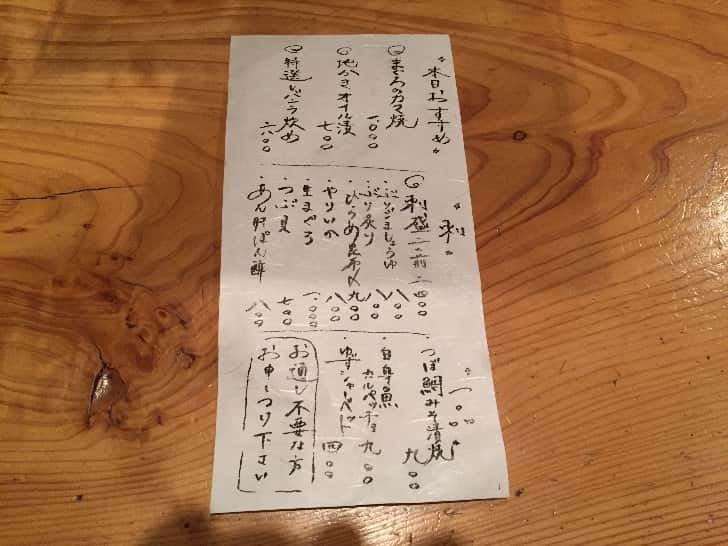 本日おすすめ
まぐろのカマ焼
一、〇〇〇
地かき オイル漬
七〇〇
炊め
六八〇
刺
刺盛 二人前 二四〇〇
ぶり炙り
ひらめ昆布〆 九〇〇
やりいか 八〇〇
生まぐろ 一、〇〇〇
つぶ貝 七〇〇
あん肝ぽん酢 八〇〇
つぼ鯛みそ漬焼 九〇〇
白身魚
カルパッチョ 九〇〇
ゆずシャーベット 四〇〇
お通し不要な方
お申しつけ下さい